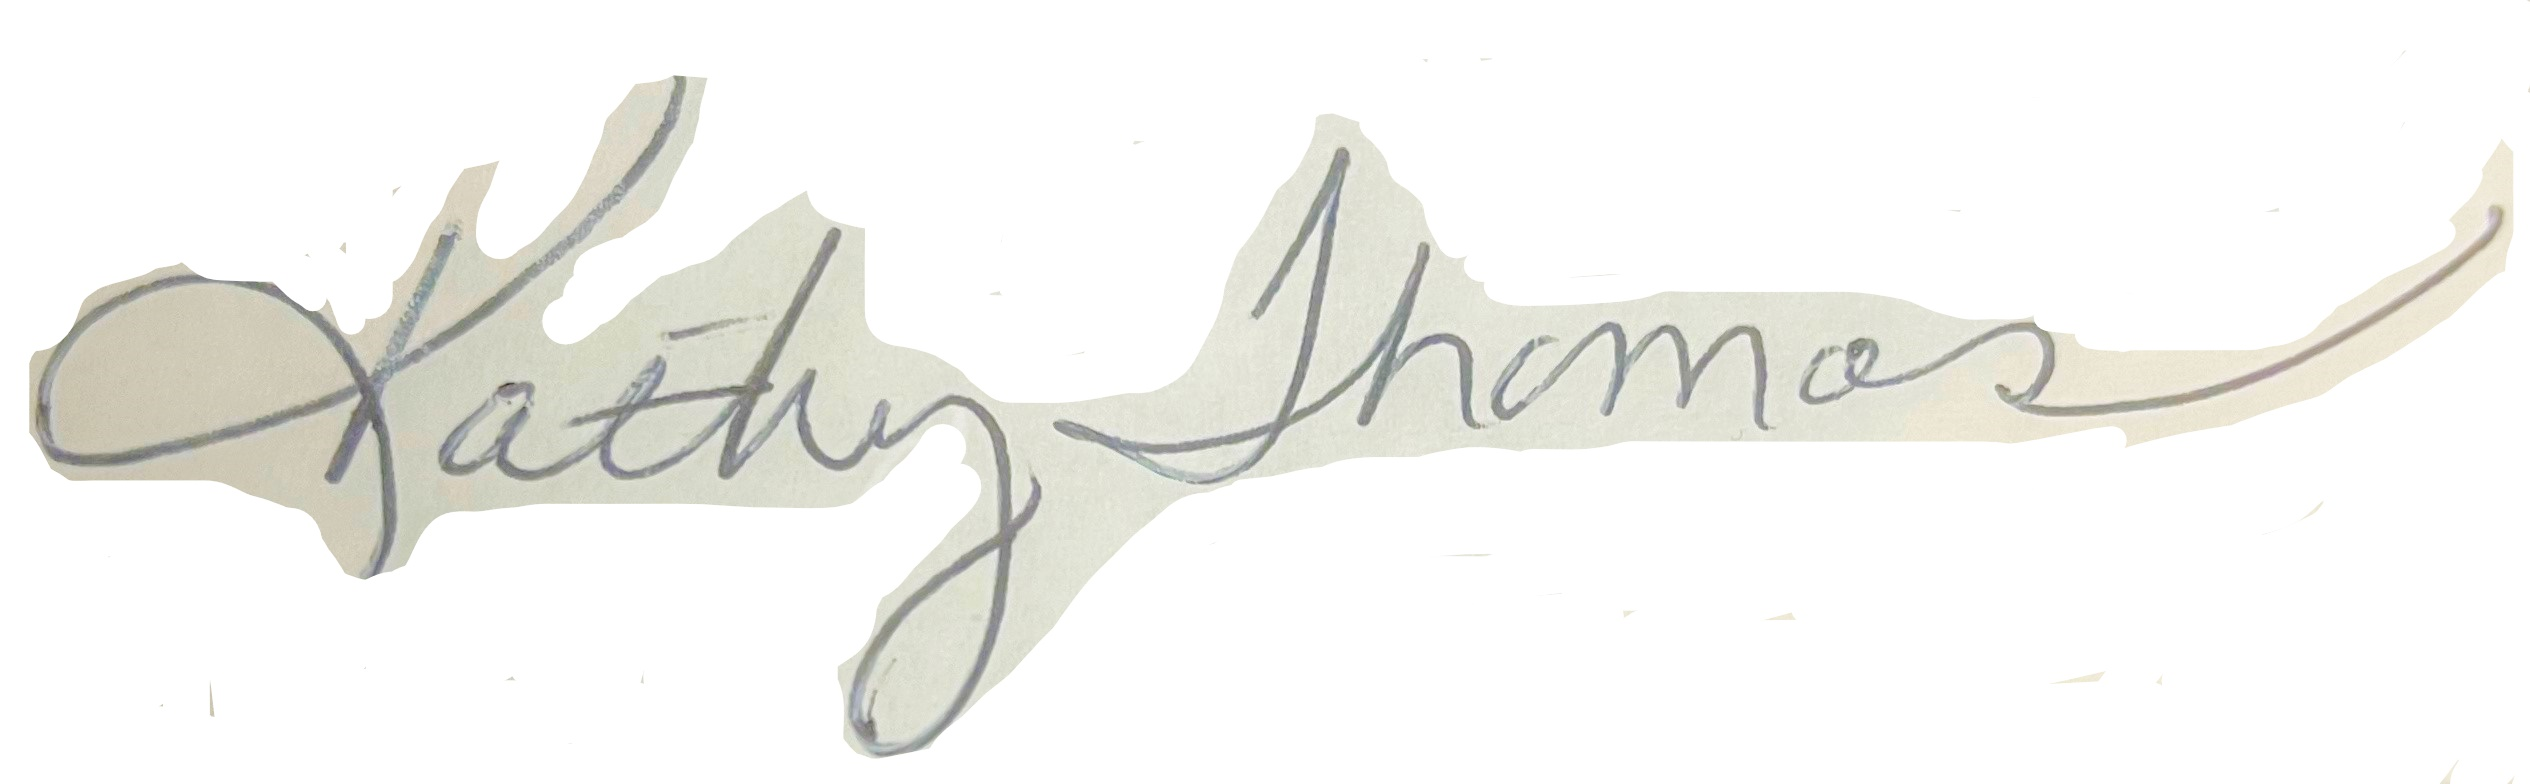 Kathy Thomas